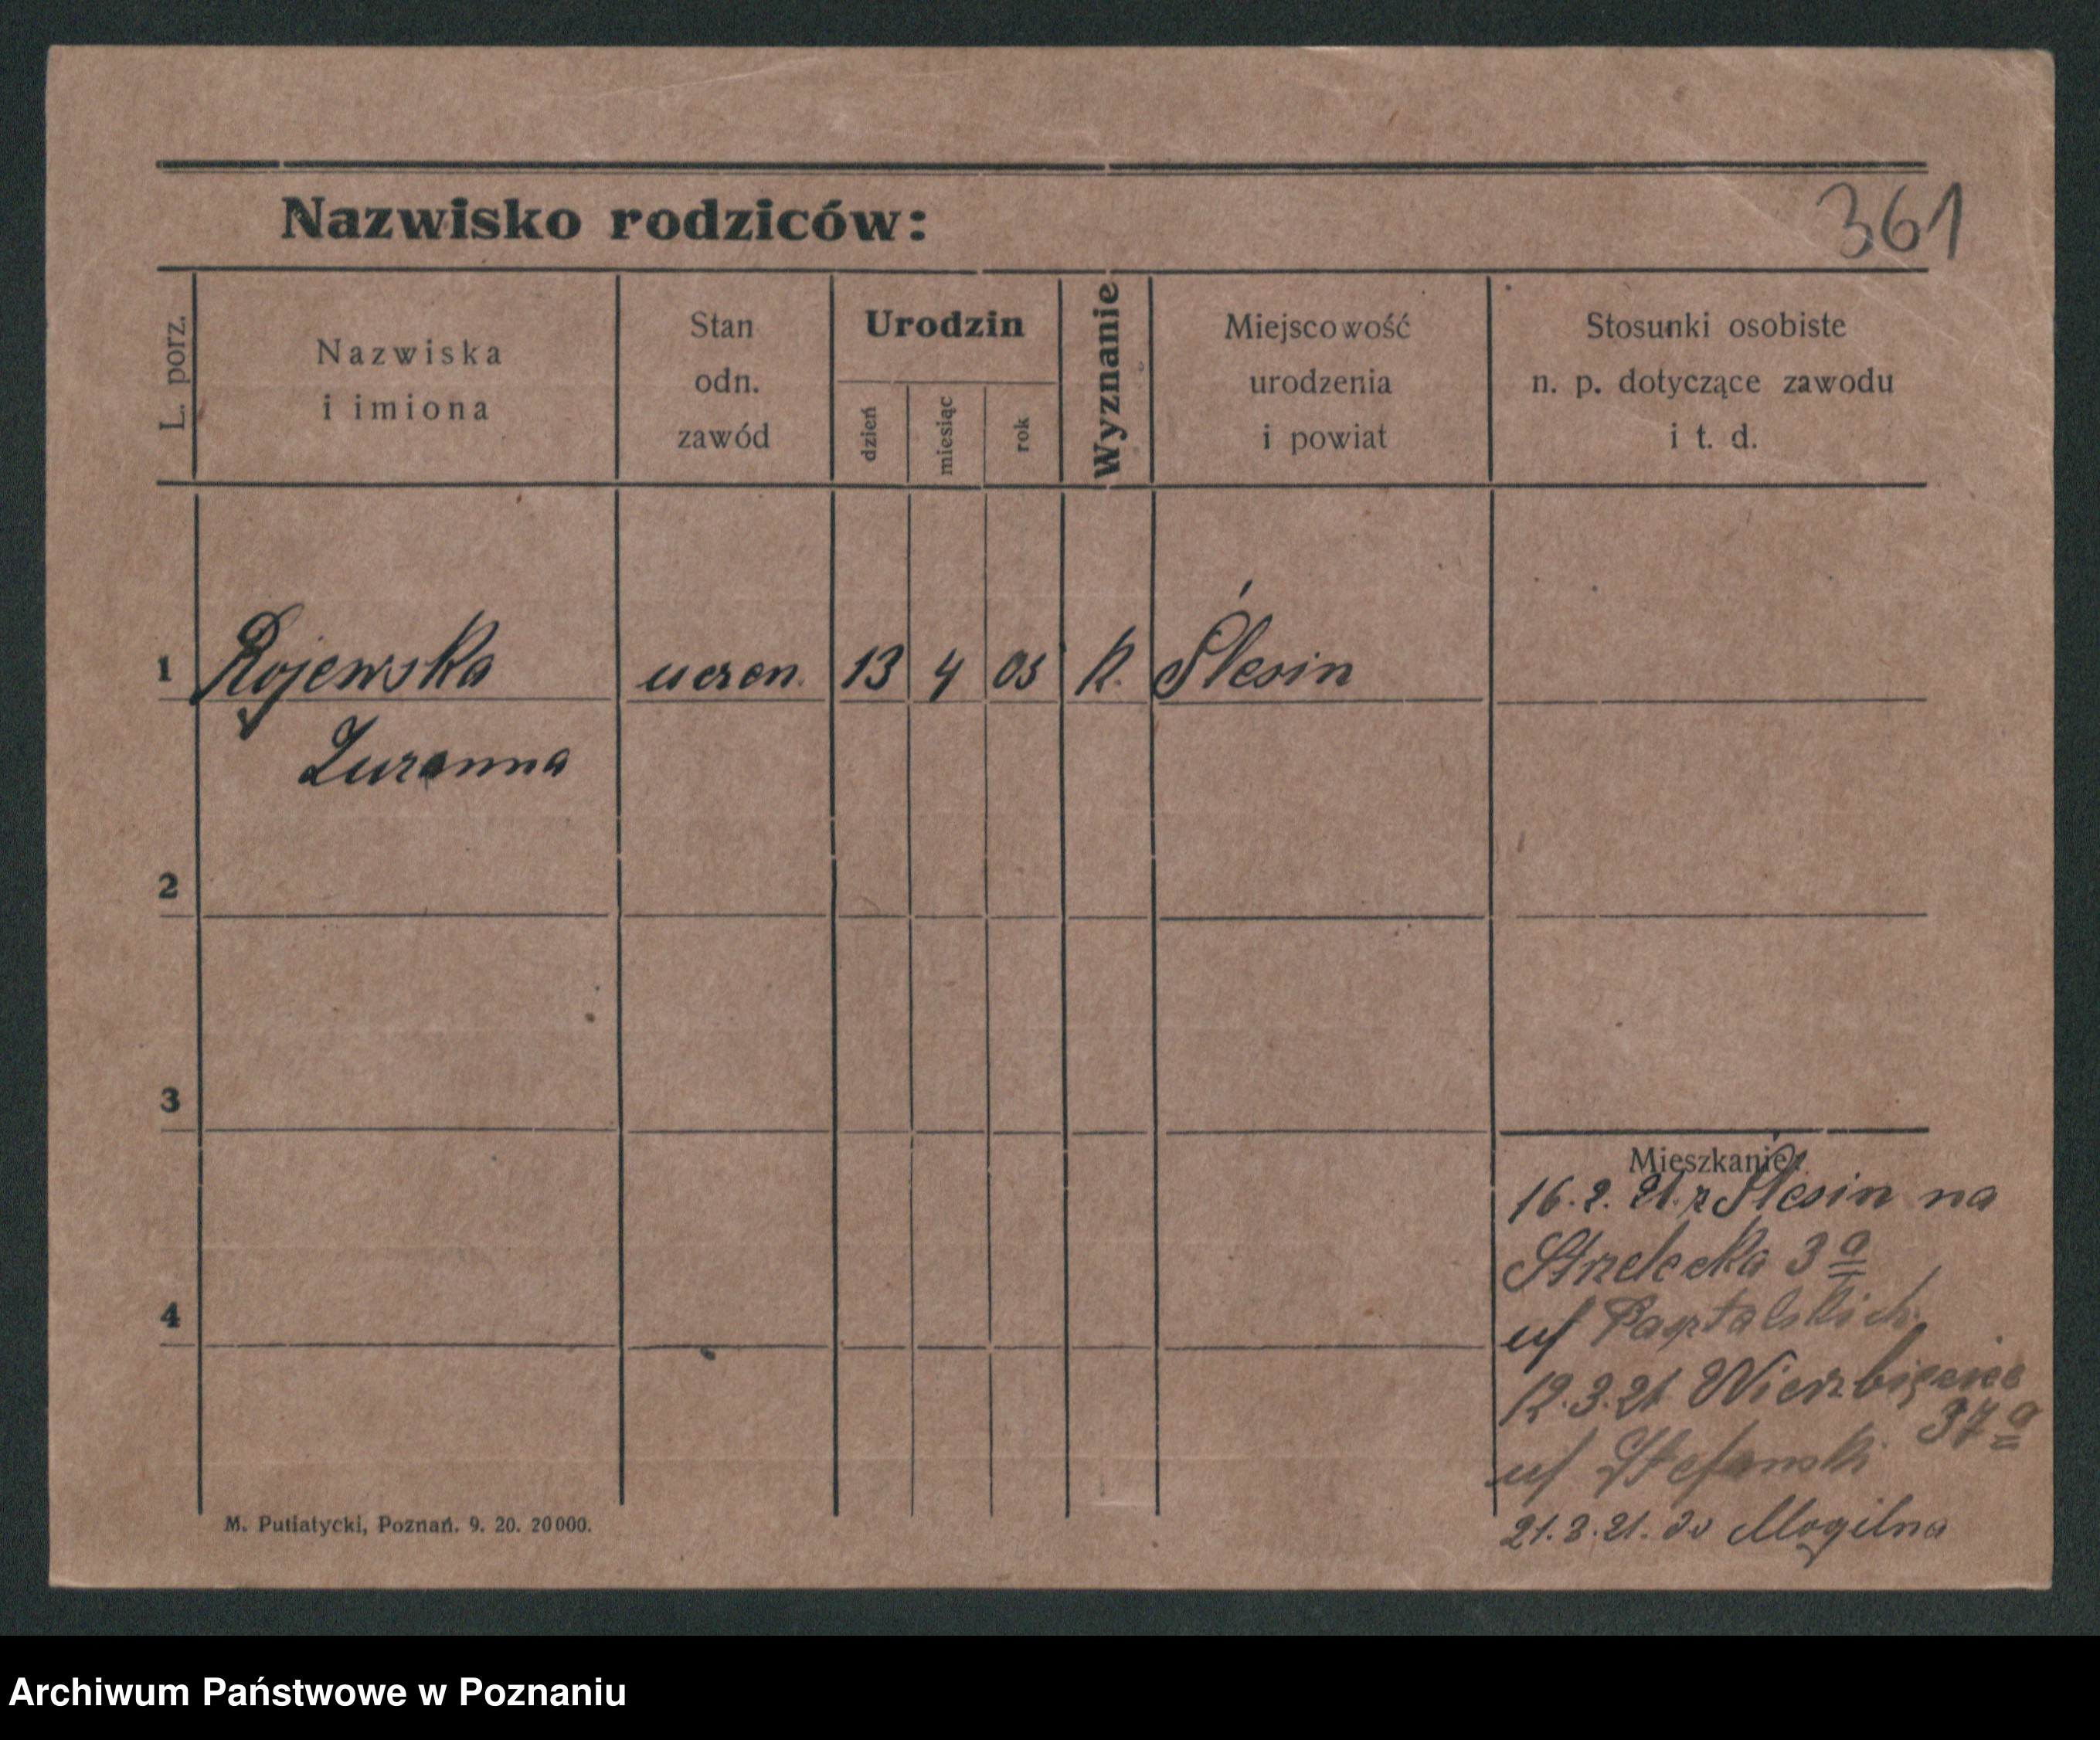 Nazwisko rodziców:
361
L. porz.
Nazwiska
i imiona
Stan
odn.
zawód
Urodzin
dzień
miesiąc
rok
Wyznanie
Miejscowość
urodzenia
i powiat
Stosunki osobiste
n. p. dotyczące zawodu
i t. d.
1 Rojewska uczen. 13 4 05 k. Ślesin
Zuzanna
2
3
4
Mieszkanie:
16.2.21. z Ślesin na
Strzelecka 3a
u/
12.3.21 Wierzbięcice
37a
u/ Stefanski
21.3.21. do Mogilna
M. Putiatycki, Poznań. 9. 20. 20000.
Archiwum Państwowe w Poznaniu